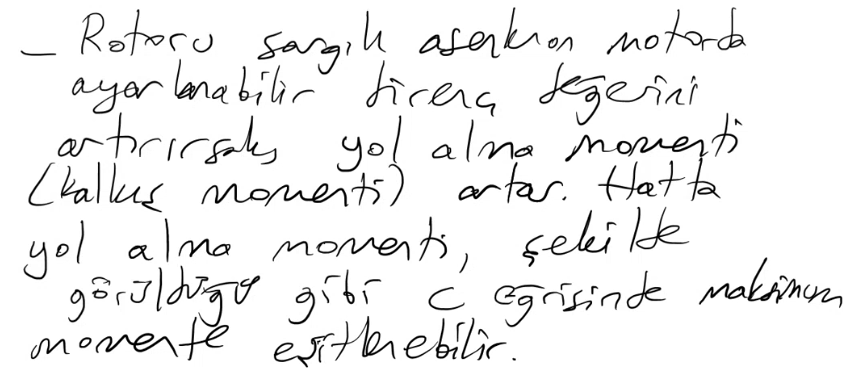 — Rotoru sargılı asenkron motorda
ayarlanabilir direnç değerini
artırırsak, yol alma momenti
(kalkış momenti) artar. Hatta
yol alma momenti, şekilde
görüldüğü gibi C eğrisinde maksimum
momente eşitlenebilir.